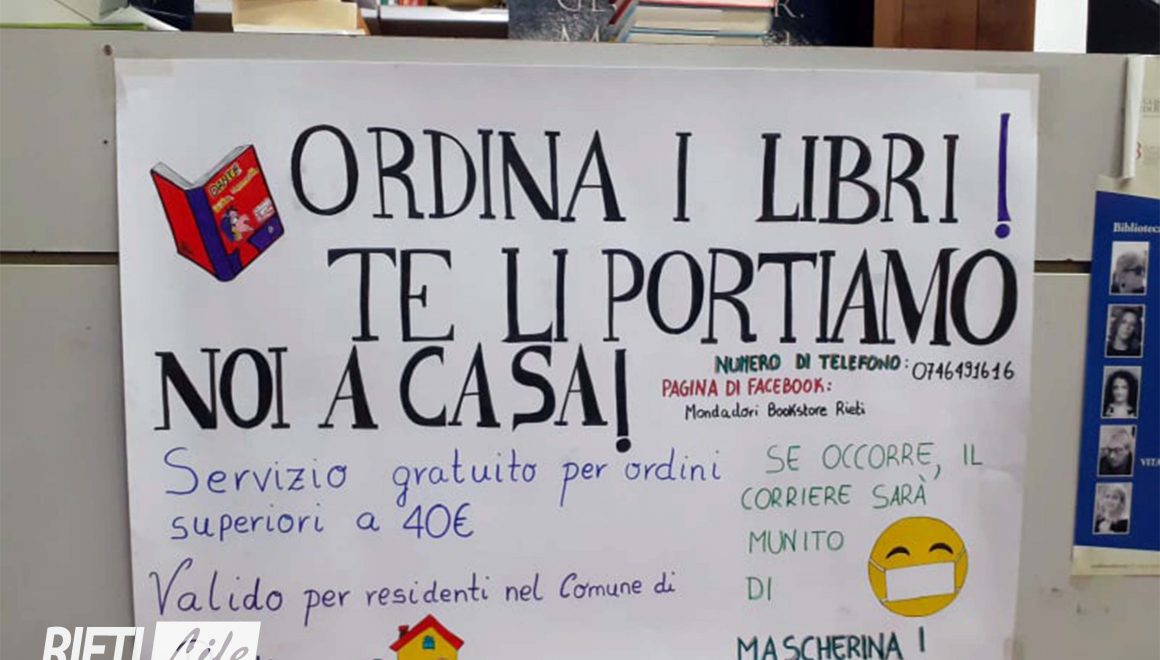 ORDINA I LIBRI!
TE LI PORTIAMO
NOI A CASA!
NUMERO DI TELEFONO: 0746491616
PAGINA DI FACEBOOK:
Mondadori Bookstore Rieti
Servizio gratuito per ordini
superiori a 40€
Valido per residenti nel Comune di
SE OCCORRE, IL
CORRIERE SARÀ
MUNITO
DI
MASCHERINA!
DANTE
Biblioteca
VITA
RIETI